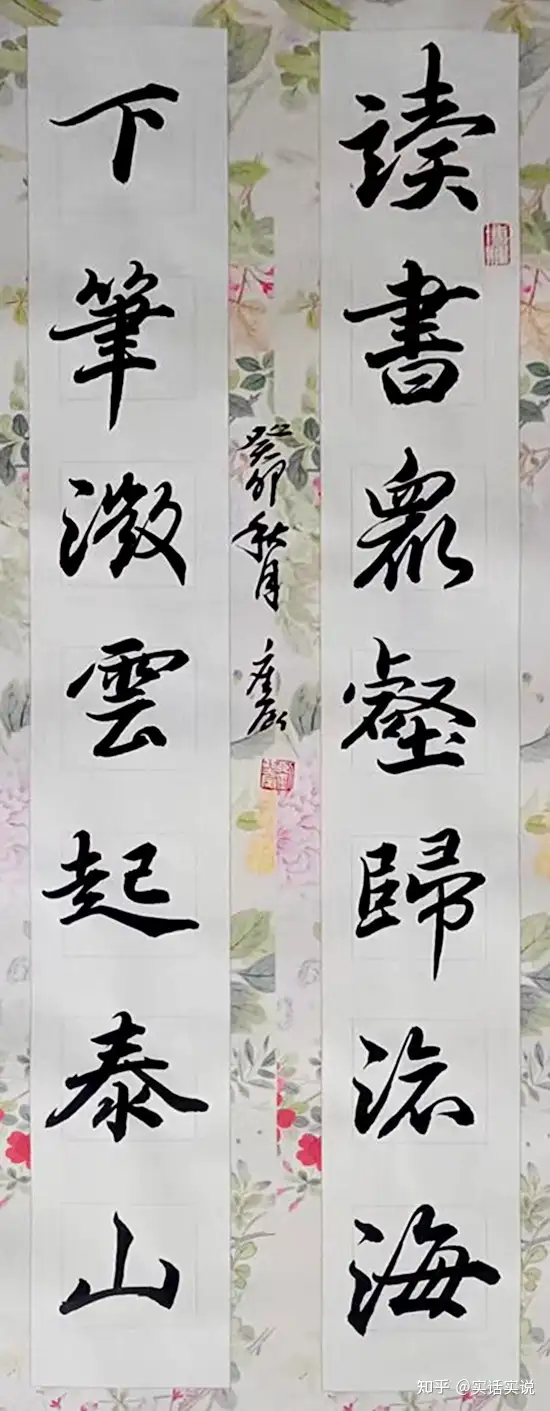 讀書眾壑歸滄海
下筆微雲起泰山
癸卯秋月
知乎 @实话实说